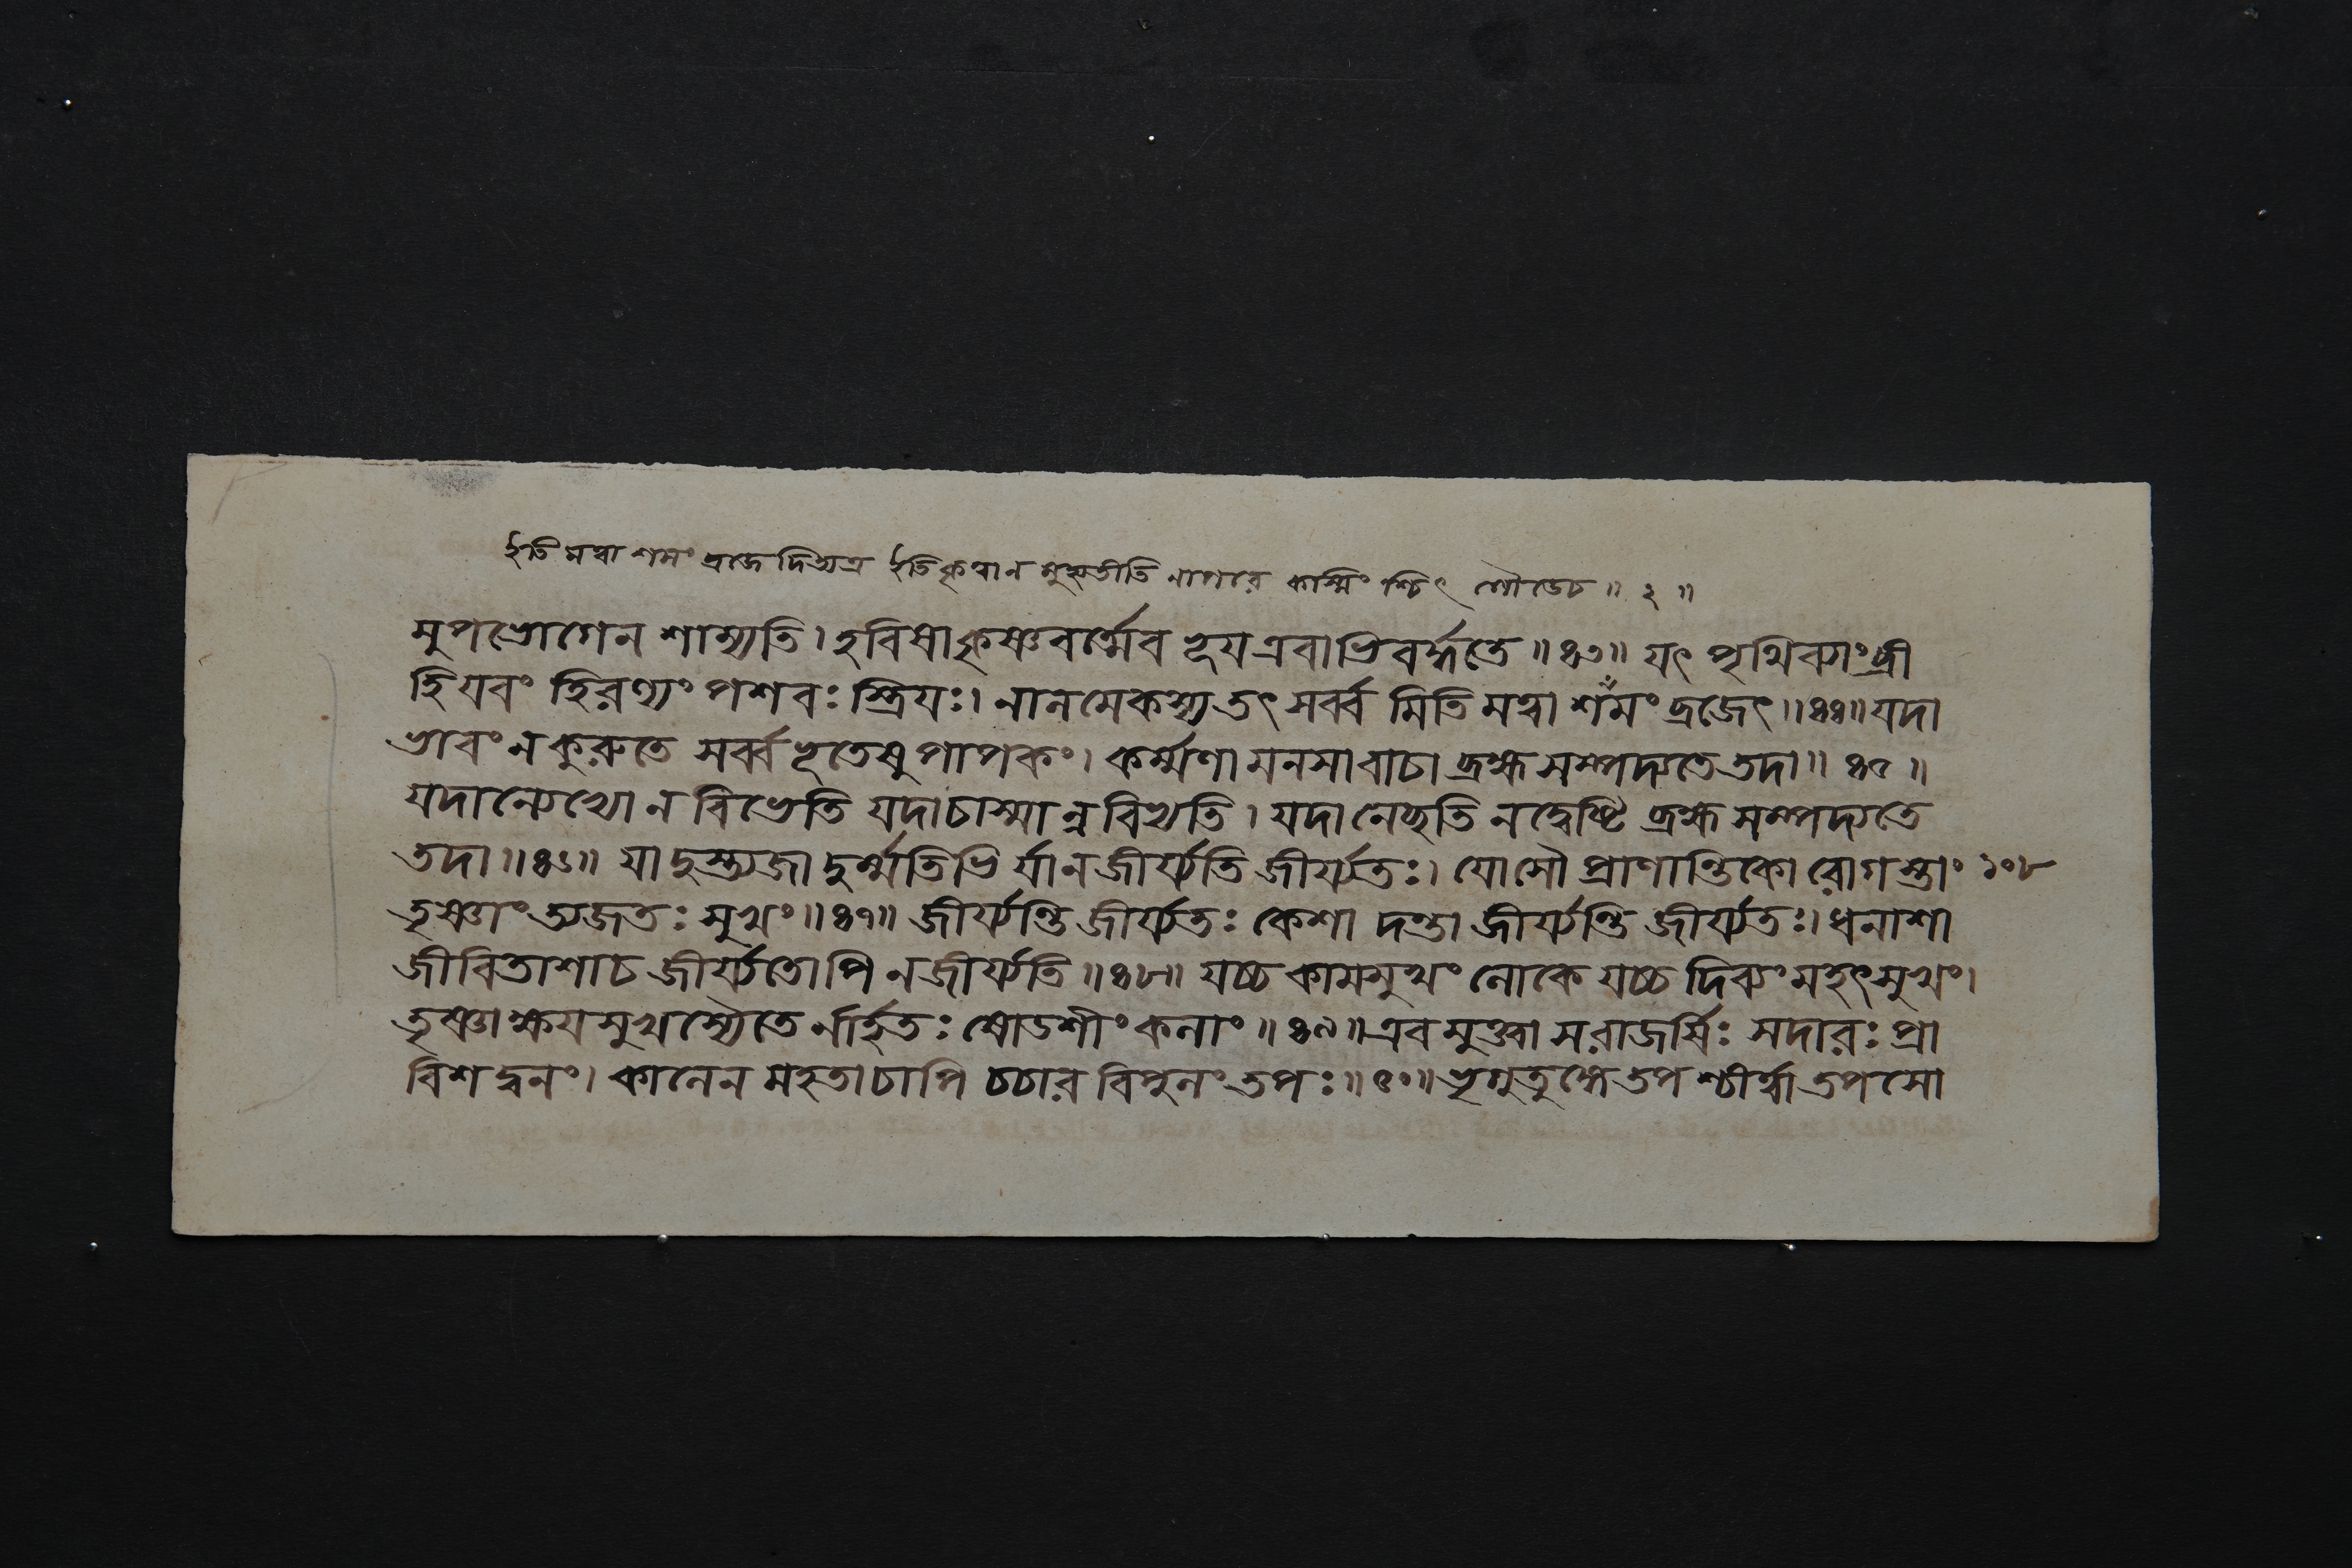 ইতি মত্বা শমং ব্রজেদিত্যত্র ইতি কৃত্বা ন মুহ্যতীতি নাপরে কস্মিংশ্চিৎ গৌডেচ ॥ ২ ॥
মুপভোগেন শাম্যতি। হবিষা কৃষ্ণবর্ত্মেব ভূয এবাভিবর্দ্ধতে ॥ ৪৩॥ যৎ পৃথিব্যাং ব্রী
হিযবং হিরণ্যং পশবঃ স্ত্রিযঃ। নালমেকস্য তৎ সর্ব্ব মিতি মত্বা শমং ব্রজেৎ॥ ৪৪॥ যদা
ভাবং ন কুরুতে সর্ব্ব ভূতেষু পাপকং। কর্ম্মণা মনসা বাচা ব্রহ্ম সম্পদ্যতে তদা॥ ৪৫ ॥
যদান্যেভ্যো ন বিভেতি যদাচাস্মা ন্ন বিভ্যতি। যদা নেচ্ছতি ন দ্বেষ্টি ব্রহ্ম সম্পদ্যতে
তদা॥ ৪৬॥ যা দুস্ত্যজা দুর্ম্মতিভি র্যা ন জীর্য্যতি জীর্য্যতঃ। যোসৌ প্রাণান্তিকো রোগ স্তাং ১০৮
তৃষ্ণাং ত্যজতঃ সুখং॥ ৪৭॥ জীর্য্যন্তি জীর্য্যতঃ কেশা দন্তা জীর্য্যন্তি জীর্য্যতঃ। ধনাশা
জীবিতাশাচ জীর্য্যতোপি ন জীর্য্যতি॥ ৪৮॥ যচ্চ কামসুখং লোকে যচ্চ দিব্যং মহৎ সুখং।
তৃষ্ণাক্ষযসুখস্যৈতে র্নার্হতঃ ষোডশীং কলাং॥ ৪৯॥ এব মুক্ত্বা স রাজর্ষিঃ সদারঃ প্রা
বিশ দ্বনং। কালেন মহতা চাপি চচার বিপুলং তপঃ॥ ৫০॥ ভৃগুতুঙ্গে তপ শ্চীর্ত্বা তপসো